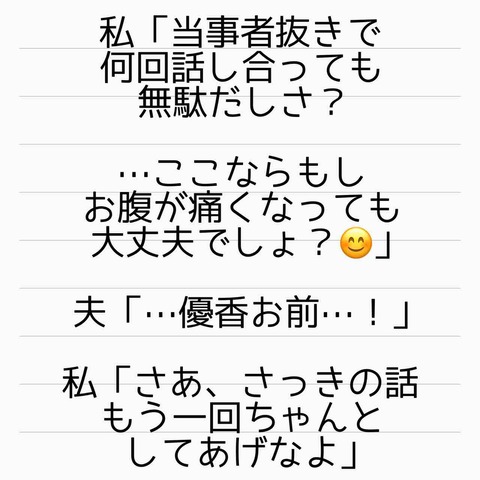 私「当事者抜きで
何回話し合っても
無駄だしさ？
…ここならもし
お腹が痛くなっても
大丈夫でしょ？😊」
夫「…優香お前…！」
私「さあ、さっきの話
もう一回ちゃんと
してあげなよ」